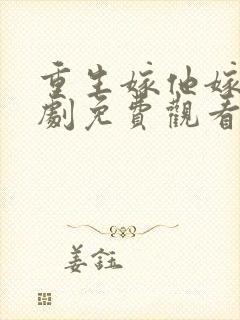 重生嫁他嫁
劇免費觀看
姜鈺